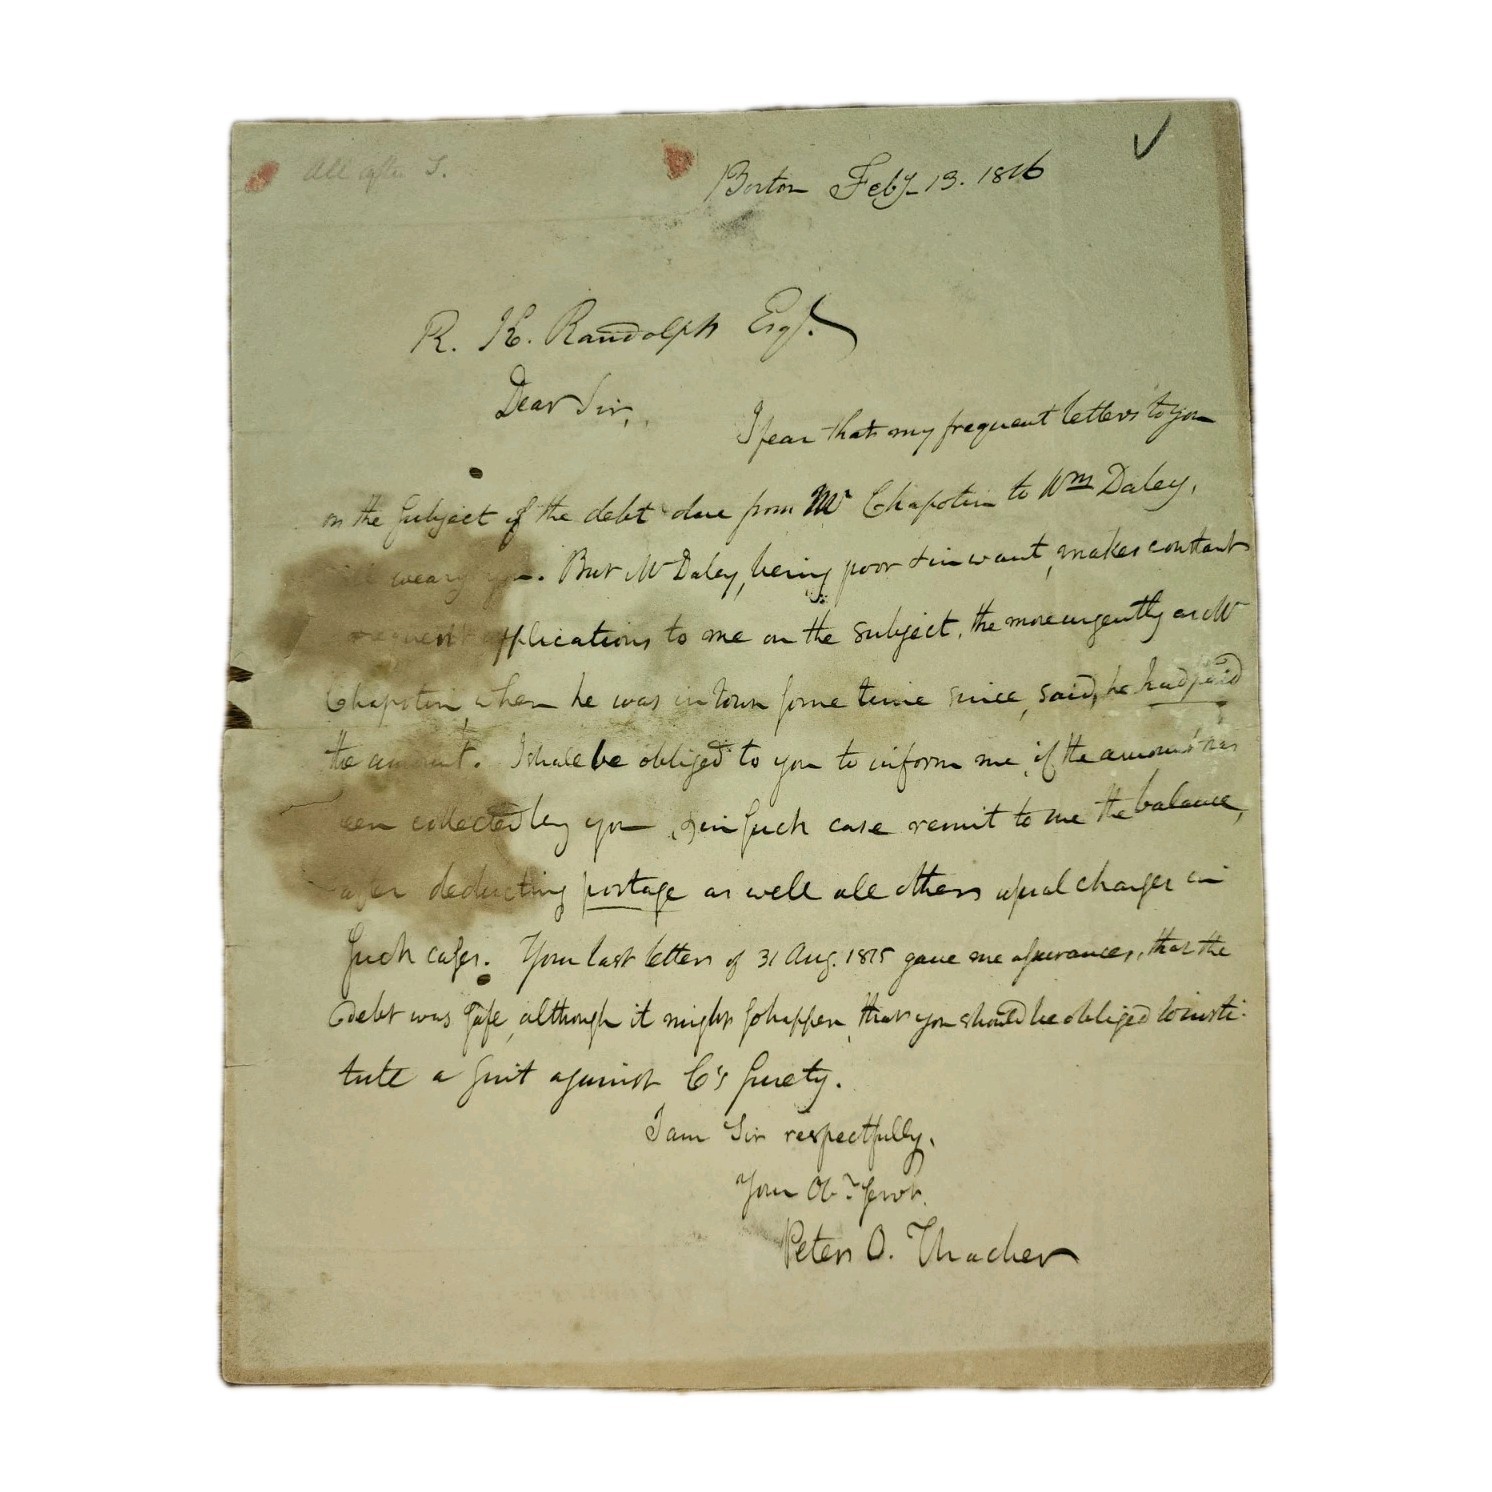 All after S.
Boston Feby 13. 1816
R. K. Randolph Esqr.
Dear Sir,
I fear that my frequent letters to you
on the subject of the debt due from Mr Chapotin to Wm Daley,
will weary you. But Mr Daley, being poor & in want, makes constant
& frequent applications to me on the subject, the more urgently as Mr
Chapotin, when he was in town some time since, said, he had paid
the amount. I shall be obliged to you to inform me, if the amount has
been collected by you, & in such case remit to me the balance,
after deducting postage as well all others usual charges in
such cases. Your last letter of 31 Aug. 1815 gave me assurances, that the
debt was safe, although it might so happen, that you should be obliged to insti-
tute a suit against C's surety.
I am Sir respectfully,
Your Obt. Servt.
Peter O. Thacher